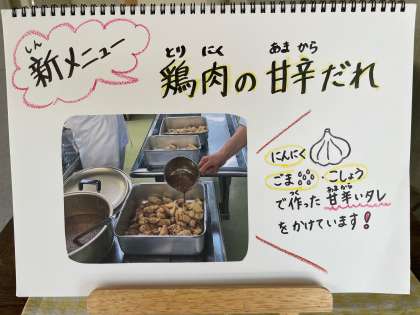 しん
新メニュー
とり にく あま から
鶏肉の甘辛だれ
にんにく
ごま・こしょう
つく あまから
で作った甘辛いタレ
をかけています!